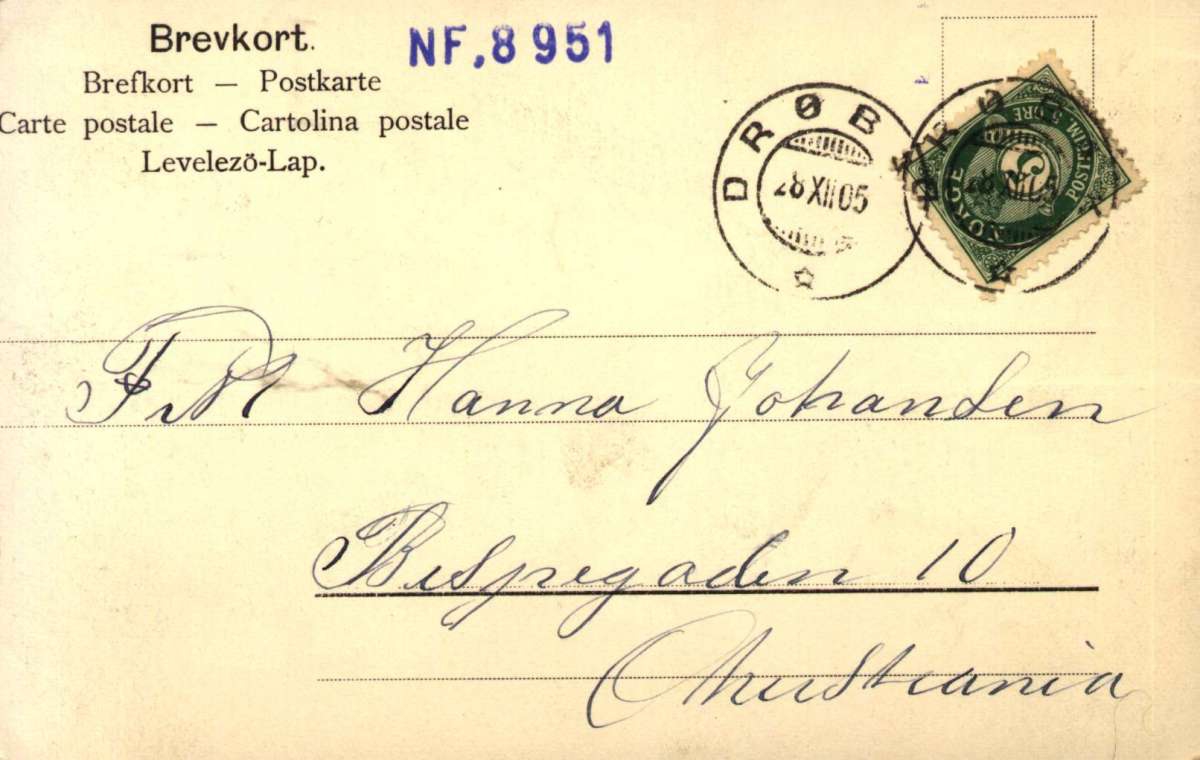 Brevkort.
NF.8951
Brefkort — Postkarte
Carte postale — Cartolina postale
Levelezö-Lap.
DRØBAK
28 XII 05
DRØBAK
28 XII 05
NORGE
POSTFRIM. 5 ØRE
5
Hanna Johansen
Bispegaden 10
Christiania